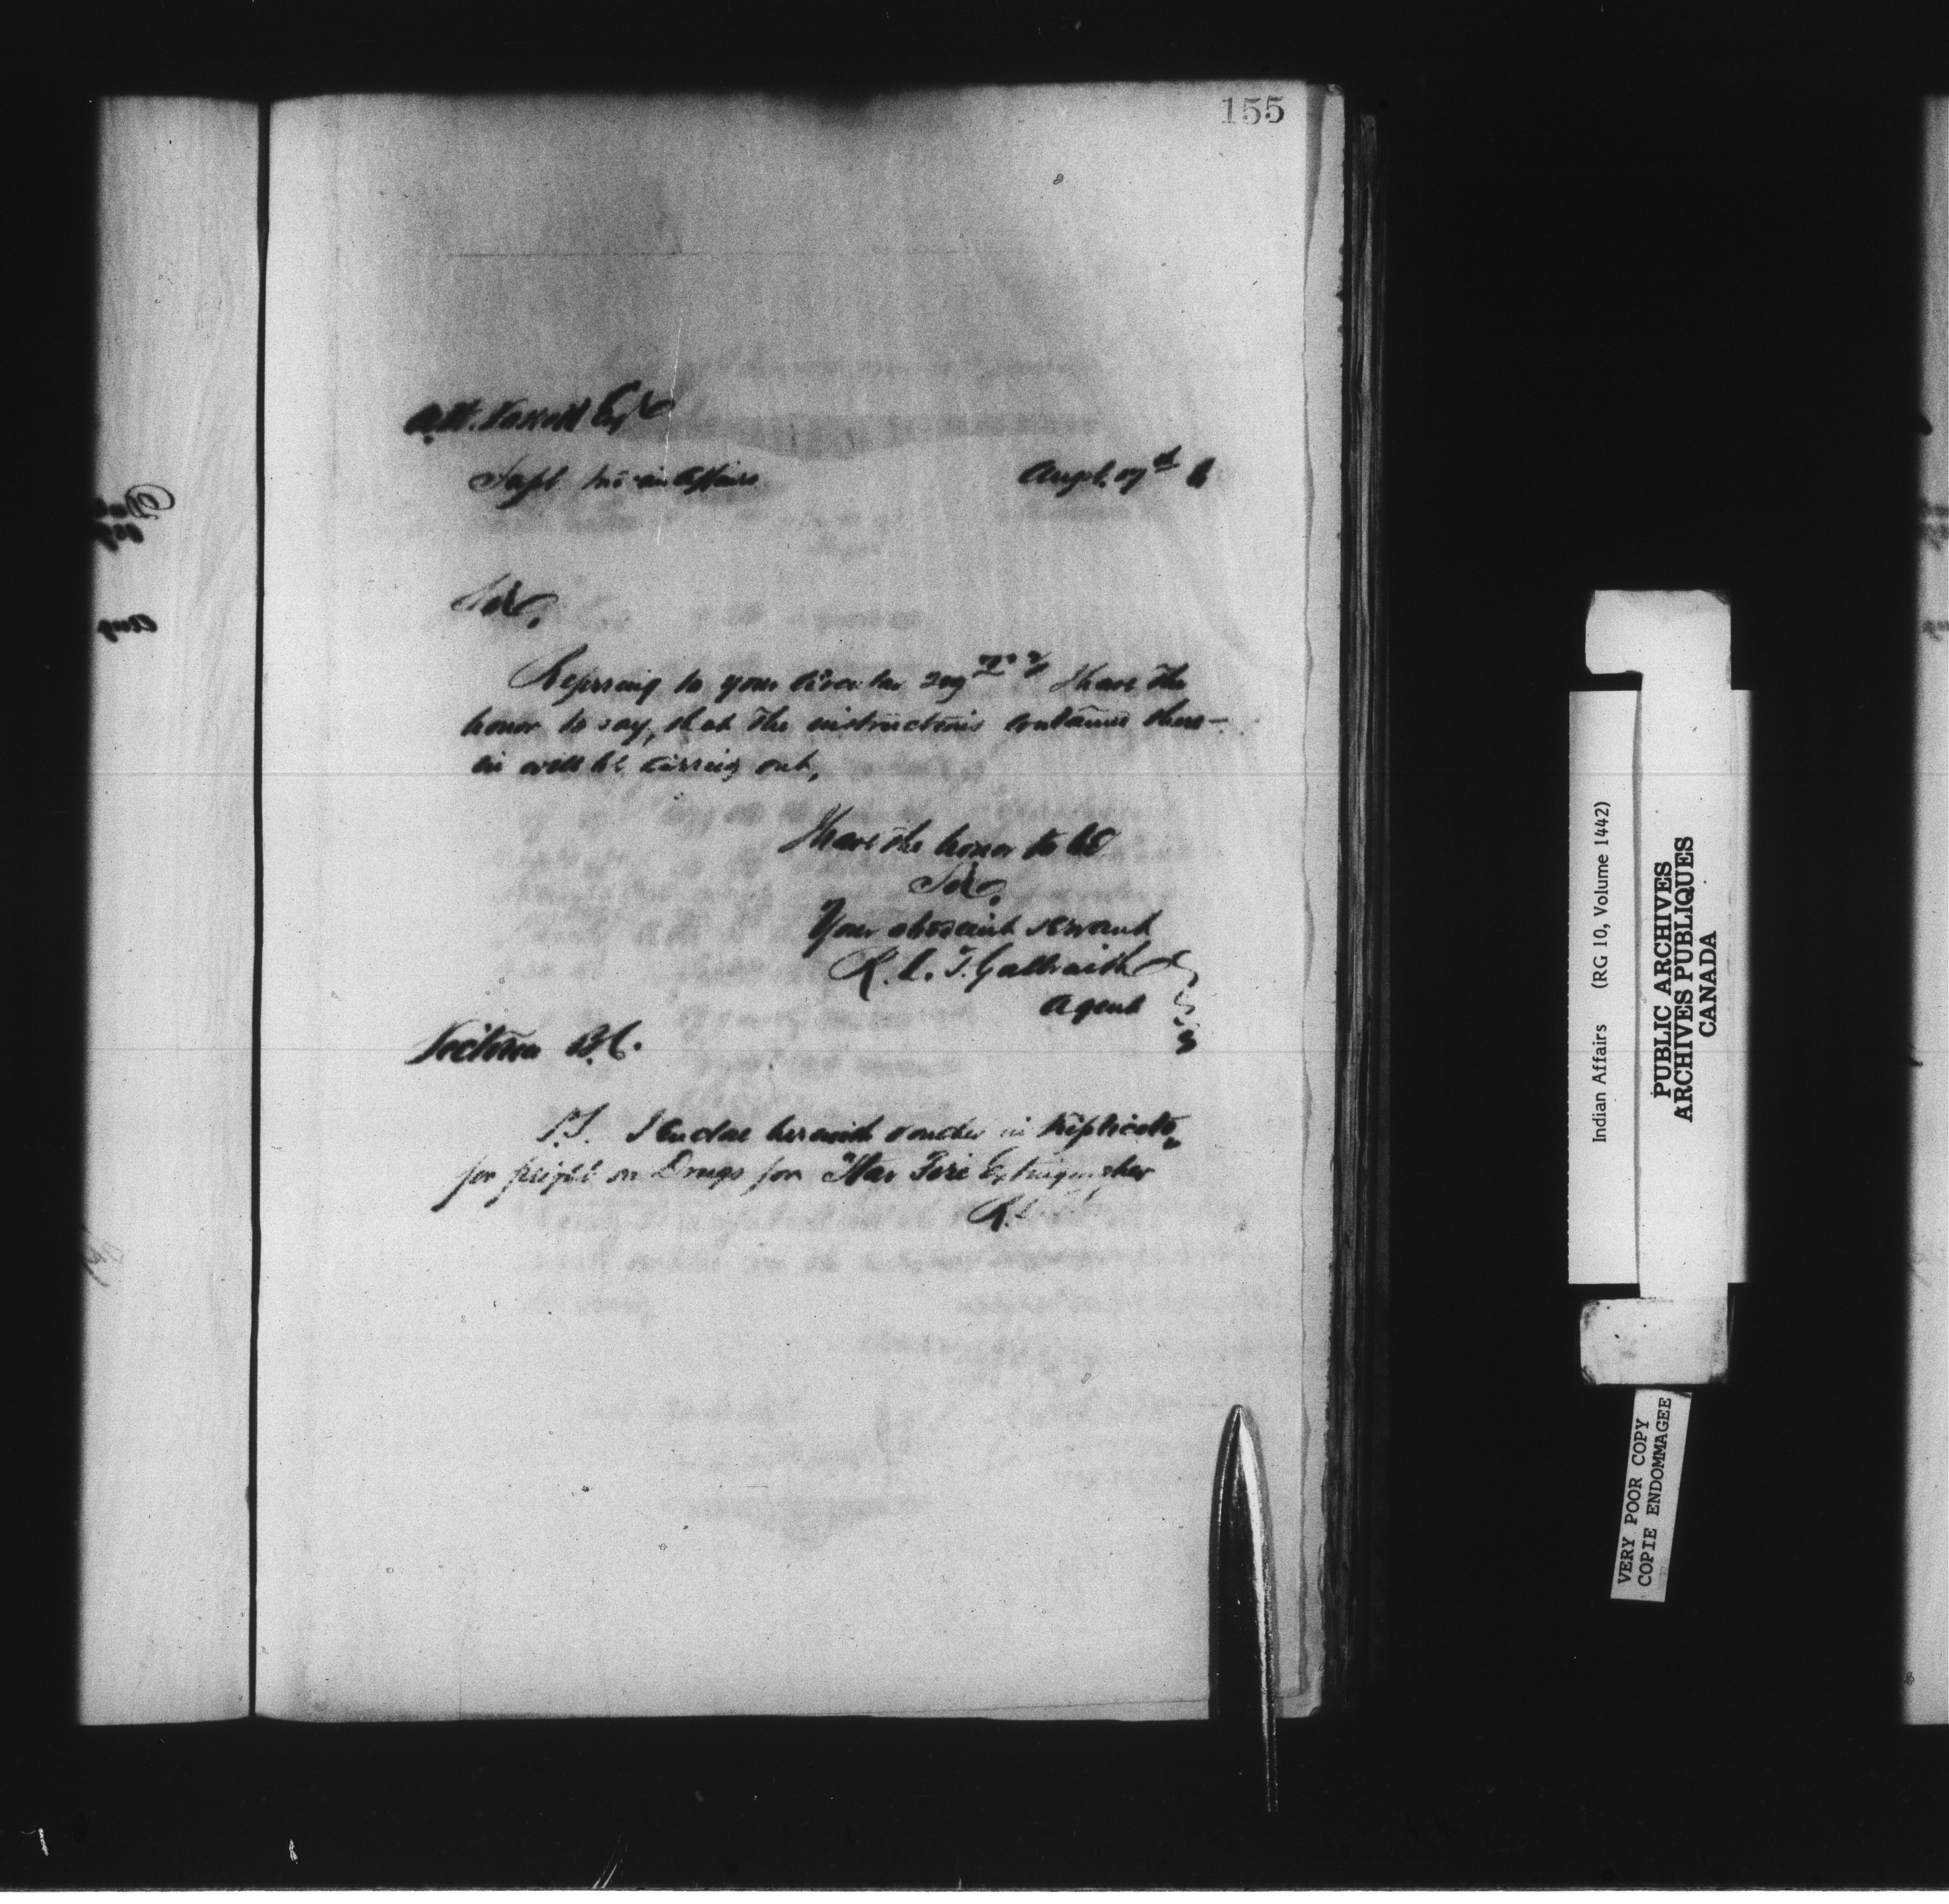 155
A.W. Vowell Esqre
Supt Indian Affairs Augt. 7th
Sir,
Referring to your Circular I have the
honor to say, that the instructions contained there-
in will be carried out,
I have the honor to be
Sir,
Your obedient servant
R. L. T. Galbraith
Agent
Victoria B.C.
P.S. I enclose herewith voucher in triplicate
for freight on Drugs for "Star Fire Extinguisher"
Indian Affairs (RG 10, Volume 1442)
PUBLIC ARCHIVES
ARCHIVES PUBLIQUES
CANADA
VERY POOR COPY
COPIE ENDOMMAGEE